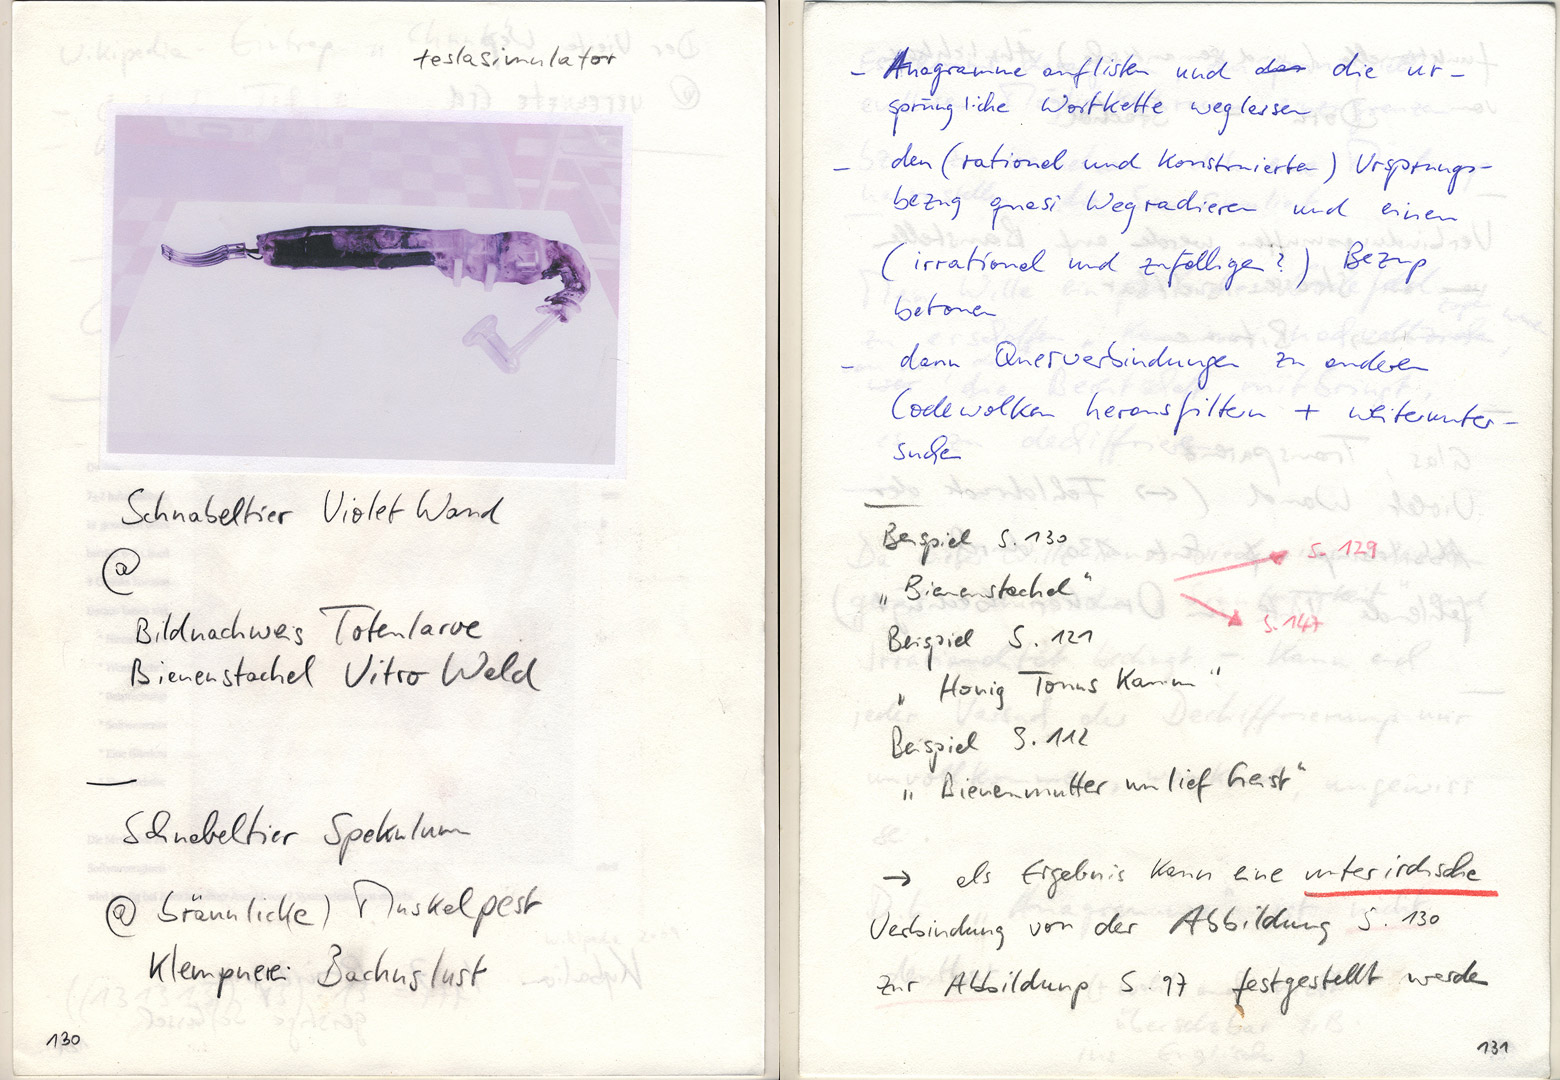 teslasimulator
Schnabeltier Violet Wand
@
Bildnachweis Totenlarve
Bienenstachel Vitro Wald
—
Schnabeltier Spekulum
@ bräunliche) Muskelpest
Klempnerei Bachuslust
130
- Anagramme auflisten und das die ur-
sprüngliche Wortkette weglassen
- den (rational und konstruierten) Ursprungs-
bezug quasi Wegradieren und einen
(irrational und zufälligen?) Bezug
betonen
- dann Querverbindungen zu anderen
Codewolken herausfiltern + weiterunter-
suchen
—
Beispiel S. 130
„Bienenstachel“
S. 129
S. 147
Beispiel S. 121
„Honig Tonus Kamm“
Beispiel S. 112
„Bienenmutter un lief Geist“
→ als Ergebnis kann eine unterirdische
Verbindung von der Abbildung S. 130
zur Abbildung S. 97 festgestellt werden
131